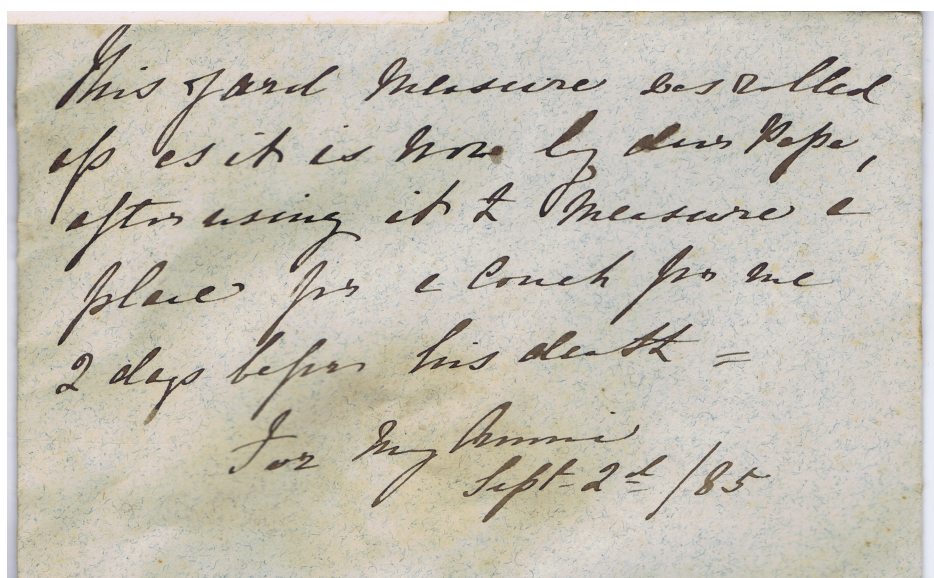 This yard measure was rolled
up as it is now by dear Papa,
after using it to measure a
place for a couch for me
2 days before his death =
For my Annie
Sept- 2d /85